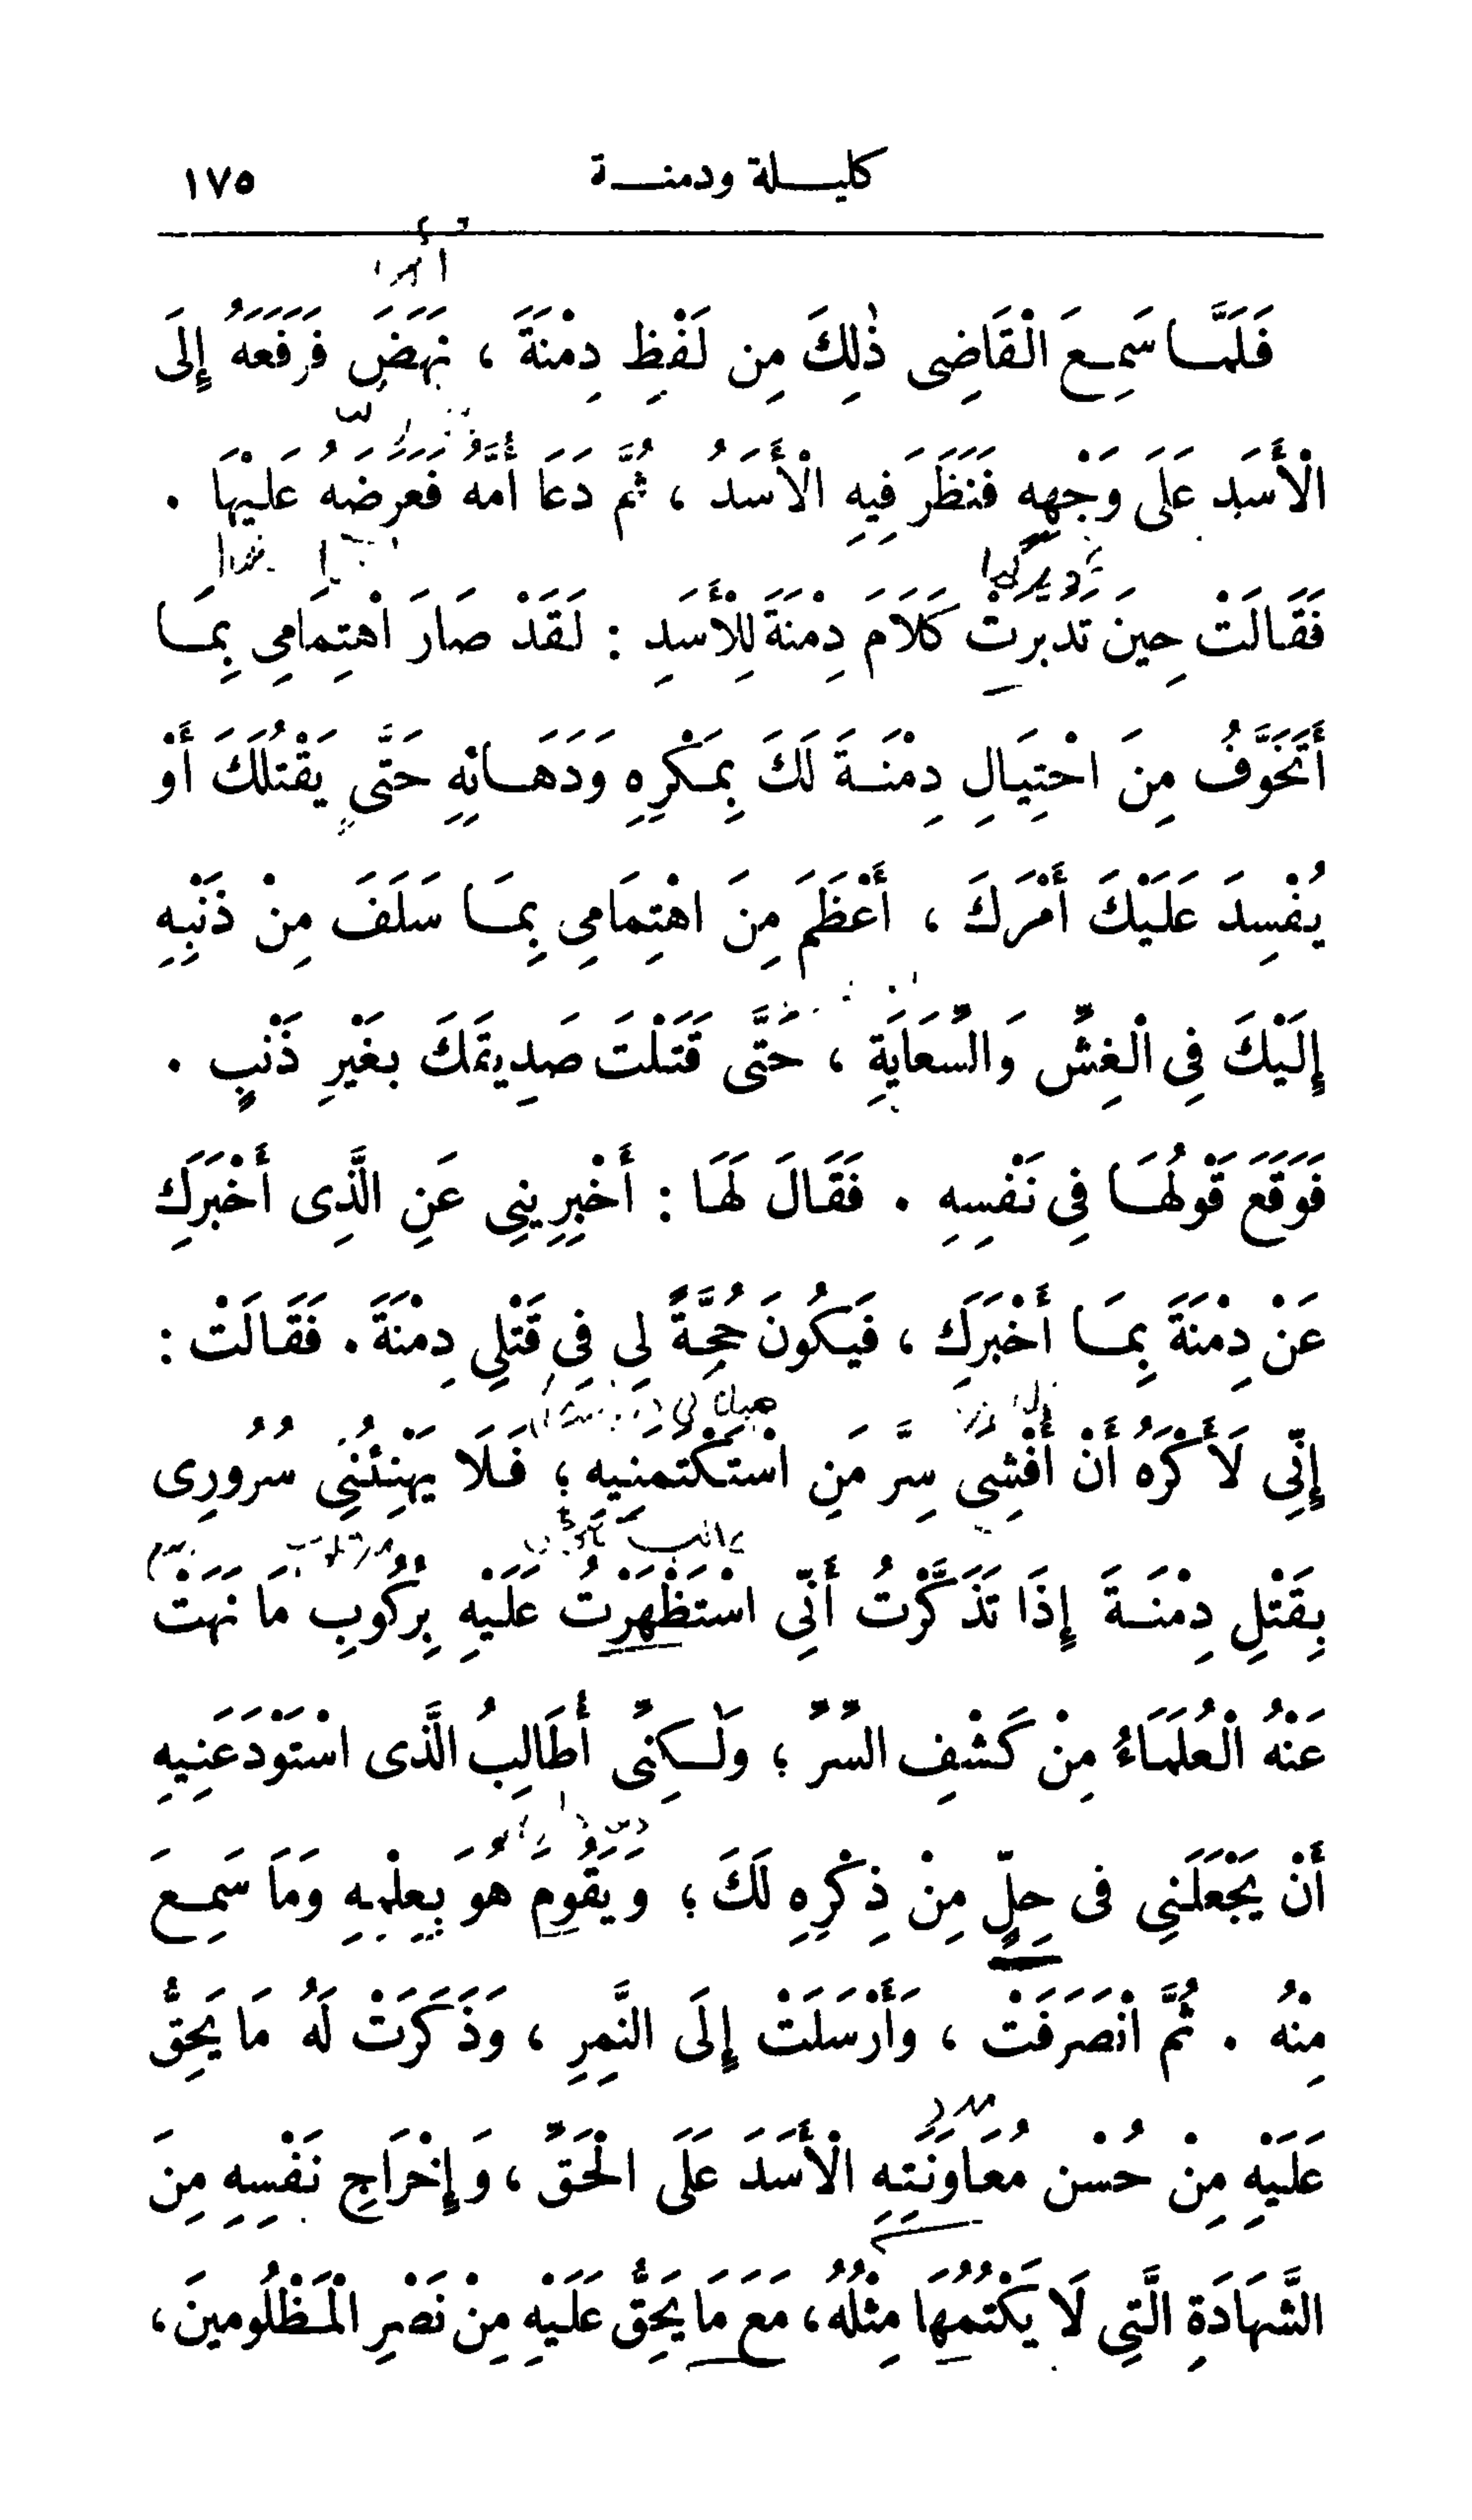 كليلة ودمنة
١٧٥
فَلَمَّا سَمِعَ الْقَاضِى ذٰلِكَ مِن لَفْظِ دِمْنَةَ ، نَهَضَ فَرَفَعَهُ إِلَى
الْأَسَدِ عَلَى وَجْهِهِ فَنَظَرَ فِيهِ الْأَسَدُ ، ثُمَّ دَعَا أُمَّهُ فَعَرَضَهُ عَلَيْهَا .
فَقَالَتْ حِينَ تَدَبَّرَتْ كَلَامَ دِمْنَةَ لِلْأَسَدِ : لَقَدْ صَارَ اهْتِمَامِي بِمَا
أَتَخَوَّفُ مِنَ احْتِيَالِ دِمْنَةَ لَكَ بِمَكْرِهِ وَدَهَائِهِ حَتَّى يَقْتُلَكَ أَوْ
يُفْسِدَ عَلَيْكَ أَمْرَكَ ، أَعْظَمَ مِنَ اهْتِمَامِي بِمَا سَلَفَ مِنْ ذَنْبِهِ
إِلَيْكَ فِي الْغِشِّ وَالسِّعَايَةِ ، حَتَّى قَتَلْتَ صَدِيقَكَ بِغَيْرِ ذَنْبٍ .
فَوَقَعَ قَوْلُهَا فِي نَفْسِهِ . فَقَالَ لَهَا : أَخْبِرِينِي عَنِ الَّذِى أَخْبَرَكِ
عَنْ دِمْنَةَ بِمَا أَخْبَرَكِ ، فَيَكُونَ حُجَّةً لِي فِي قَتْلِي دِمْنَةَ . فَقَالَتْ :
إِنِّي لَأَكْرَهُ أَنْ أُفْشِيَ سِرَّ مَنِ اسْتَكْتَمَنِيهِ ؛ فَلَا يَهْنِئُنِي سُرُورِى
بِقَتْلِ دِمْنَةَ إِذَا تَذَكَّرْتُ أَنِّى اسْتَظْهَرْتُ عَلَيْهِ بِرُكُوبِ مَا نَهَتْ
عَنْهُ الْعُلَمَاءُ مِنْ كَشْفِ السِّرِّ ؛ وَلٰكِنِّى أُطَالِبُ الَّذى اسْتَوْدَعَنِيهِ
أَنْ يَجْعَلَنِي فى حِلٍّ مِنْ ذِكْرِهِ لَكَ ؛ وَيَقُومَ هُوَ بِعِلْمِهِ وَمَا سَمِعَ
مِنْهُ . ثُمَّ انْصَرَفَتْ ، وَأَرْسَلَتْ إِلَى النَّمِرِ ، وَذَكَرَتْ لَهُ مَا يَحِقُّ
عَلَيْهِ مِنْ حُسْنِ مُعَاوَنَتِهِ الْأَسَدَ عَلَى الْحَقِّ ، وَإِخْرَاجِ نَفْسِهِ مِنَ
الشَّهَادَةِ الَّتِي لَا يَكْتُمُهَا مِثْلُهُ ، مَعَ مَا يَحِقُّ عَلَيْهِ مِنْ نَصْرِ الْمَظْلُومِينَ ،